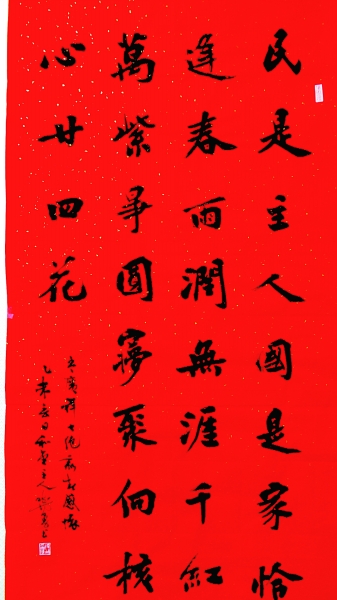 民是主人國是家恰
逢春雨潤無涯千紅
萬紫尋圓夢聚向核
心廿四花